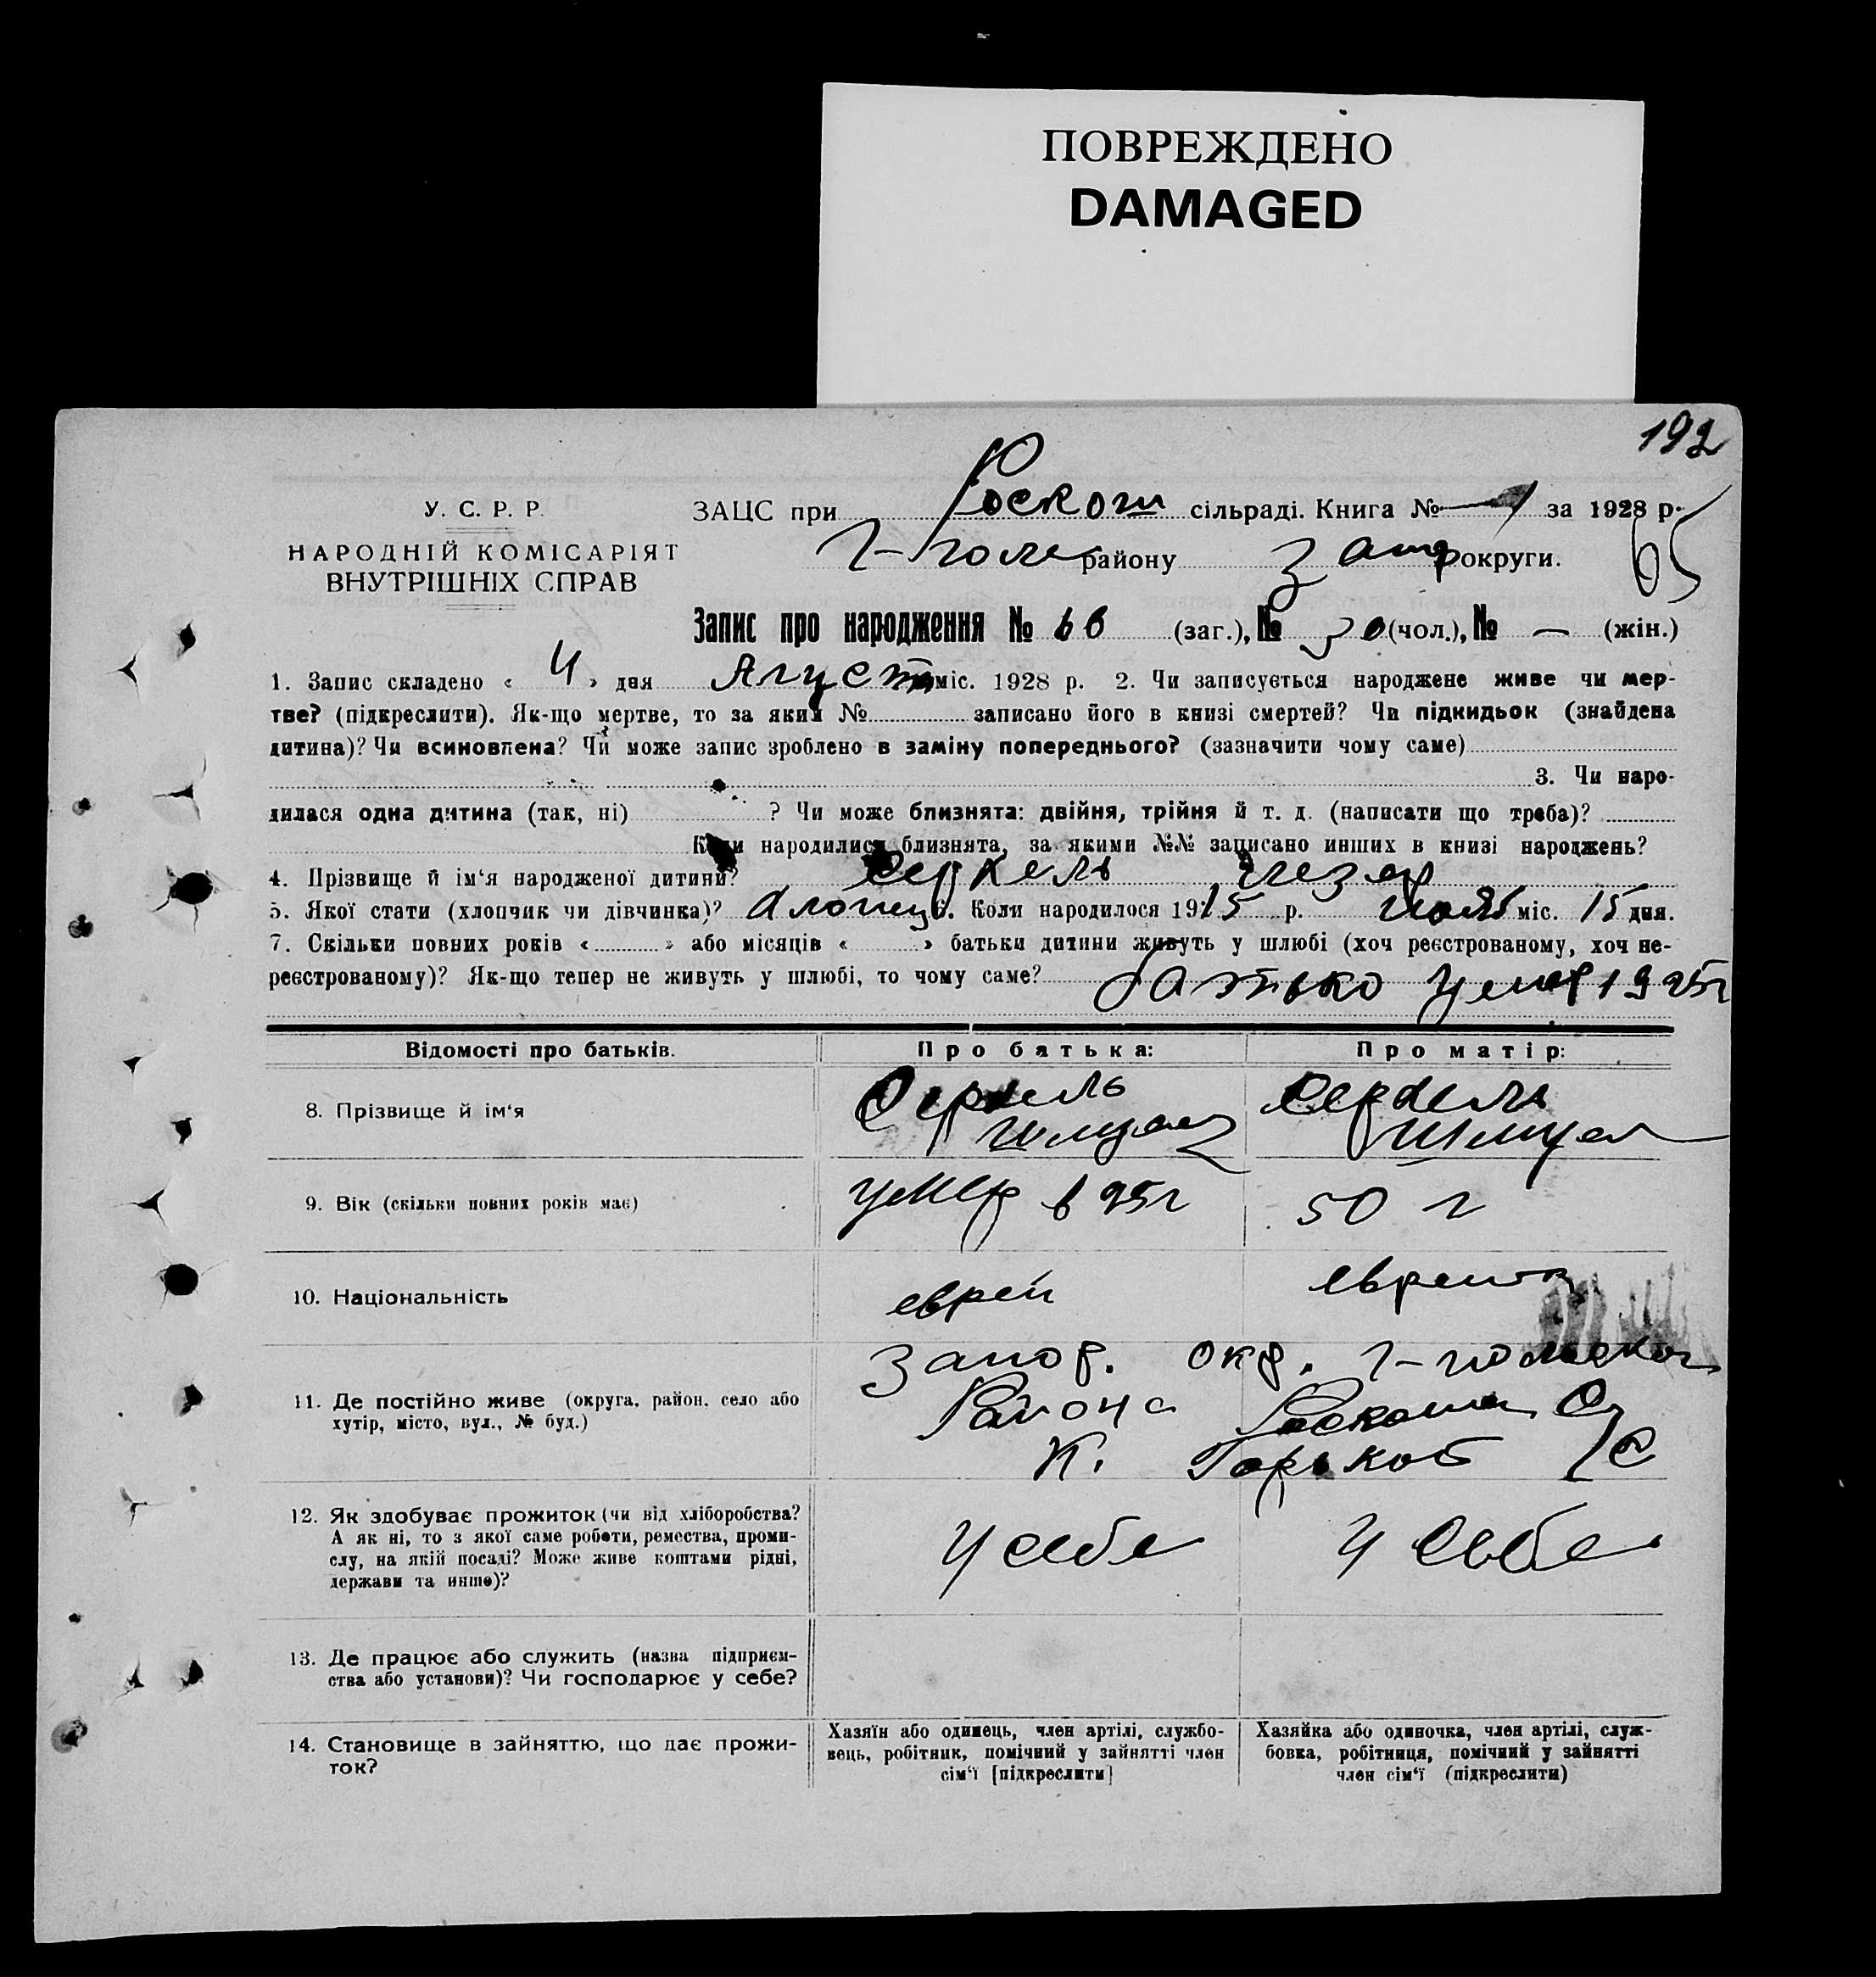 ПОВРЕЖДЕНО
DAMAGED
192
У. С. Р. Р.
НАРОДНІЙ КОМІСАРІЯТ
ВНУТРІШНІХ СПРАВ
ЗАЦС при Роскош сільраді. Книга № 1 за 1928 р.
району округи.
65
Запис про народження № 66 (заг.), № 30 (чол.), № — (жін.)
1. Запис складено « 4 » дня Август міс. 1928 р. 2. Чи записується народжене живе чи мер-
тве? (підкреслити). Як-що мертве, то за яким № записано його в книзі смертей? Чи підкидьок (знайдена
дитина)? Чи всиновлена? Чи може запис зроблено в заміну попереднього? (зазначити чому саме)
3. Чи наро-
дилася одна дитина (так, ні) ? Чи може близнята: двійня, трійня й т. д. (написати що треба)?
Коли народилися близнята, за якими №№ записано инших в книзі народжень?
4. Прізвище й ім‘я народженої дитини? Серкель
5. Якої стати (хлопчик чи дівчинка)? 6. Коли народилося 1915 р. міс. 15 дня.
7. Скільки повних років « » або місяців « » батьки дитини живуть у шлюбі (хоч реєстрованому, хоч не-
реєстрованому)? Як-що тепер не живуть у шлюбі, то чому саме? батько умер 1925г
Відомості про батьків.
Про батька:
Про матір:
8. Прізвище й ім‘я
Серкель
Серкель
9. Вік (скільки повних років має)
умер в 25г
50 г
10. Національність
еврей
еврейка
11. Де постійно живе (округа, район, село або
хутір, місто, вул., № буд.)
Запор. окр.
Района
К. Горької
12. Як здобуває прожиток (чи від хліборобства?
А як ні, то з якої саме роботи, ремества, проми-
слу, на якій посаді? Може живе коштами рідні,
держави та инше)?
у себе
у себе
13. Де працює або служить (назва підприєм-
ства або установи)? Чи господарює у себе?
14. Становище в зайняттю, що дає прожи-
ток?
Хазяїн або одинець, член артілі, службо-
вець, робітник, помічний у зайнятті член
сім‘ї [підкреслити]
Хазяйка або одиночка, член артілі, служ-
бовка, робітниця, помічний у зайнятті
член сім‘ї (підкреслити)